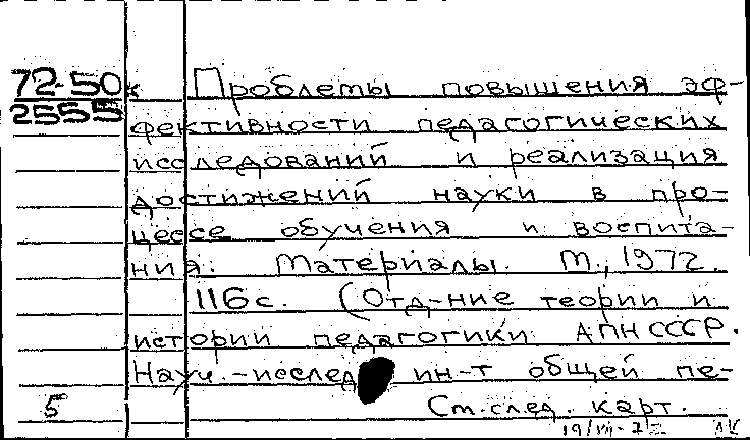 72-50
2555
Проблемы повышения эф-
фективности педагогических
исследований и реализация
достижений науки в про-
цессе обучения и воспита-
ния. Материалы. М., 1972.
116 с. (Отд-ние теории и
истории педагогики АПН СССР.
Науч.-исслед ин-т общей пе-
5 См. след. карт.
19/VII-72